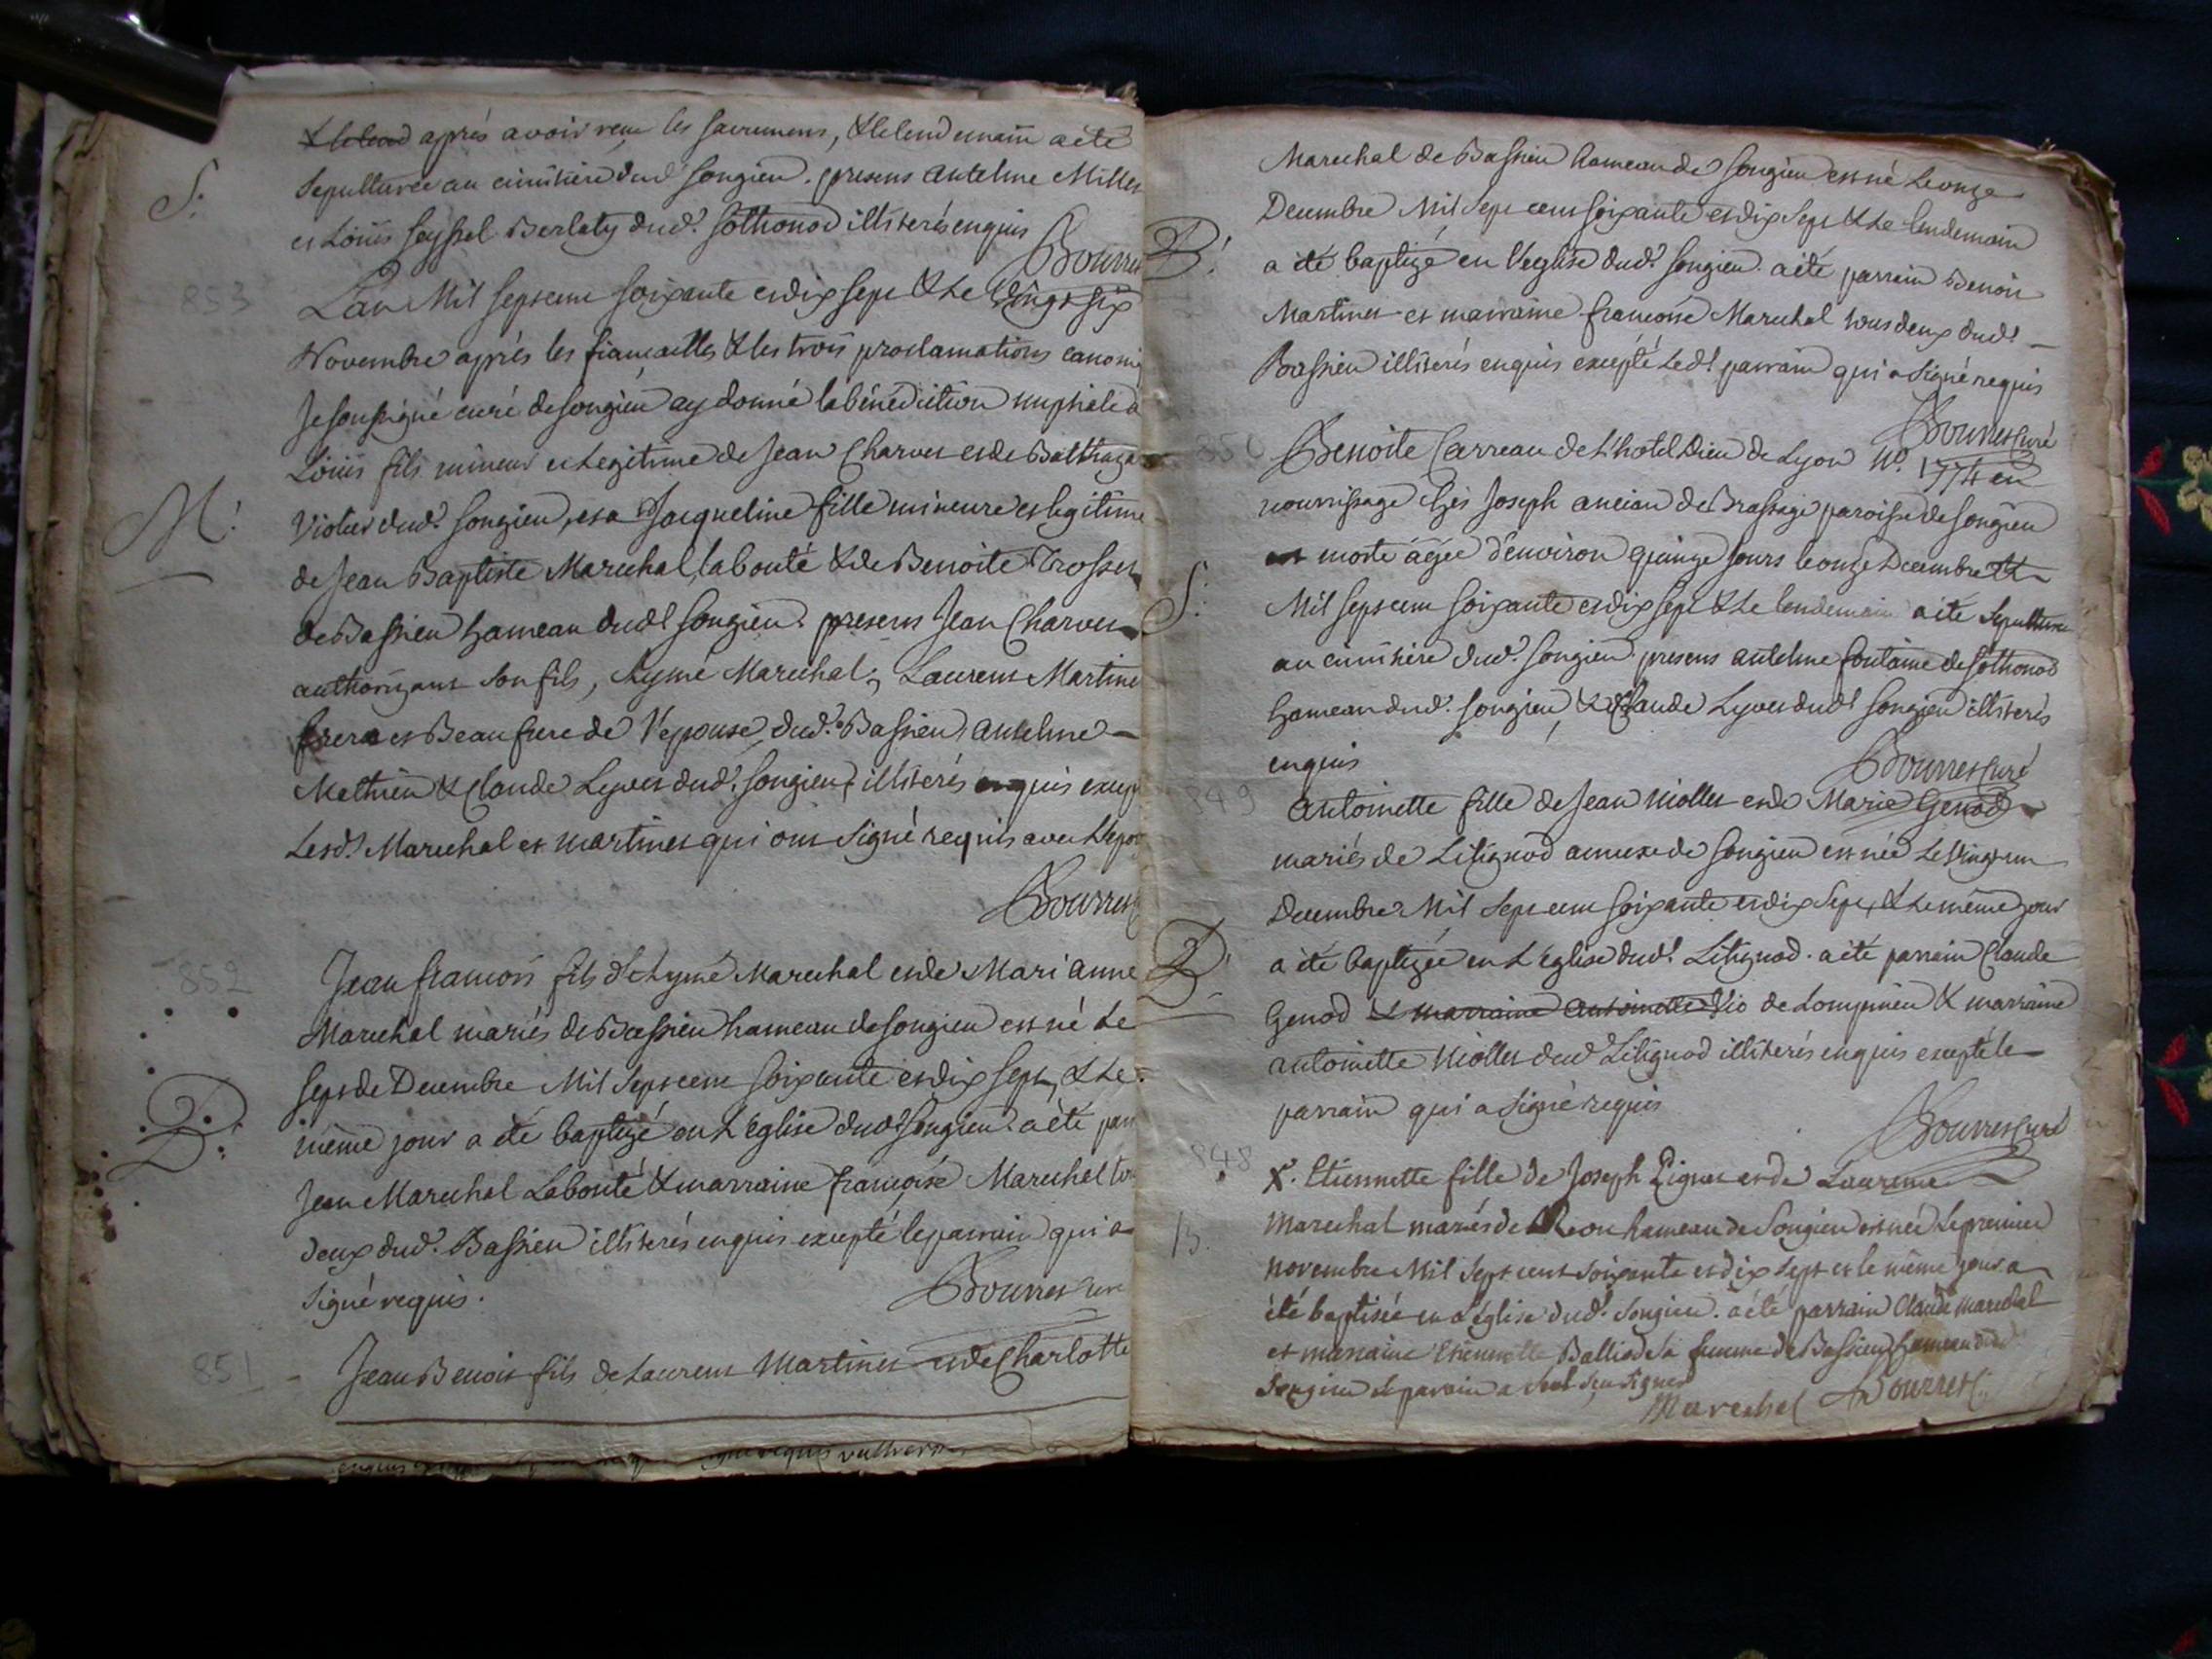 & lelend après avoir reçu les sacremens, & le lendemain a été
S.
sepulturée au cimitière dud. Songieu. presens Antelme Millet
et Loüis Seyssel Berlaty dud. Sothonod illiterés enquis
Bourret
853
L'an Mil sept cent soixante et dix sept & le vingt six
Novembre après les fiançailles & les trois proclamations canoni
Je soussigné curé de Songieu ay donné la bénédiction nuptiale à
Loüis fils mineur et legitime de Jean Charvet et de Balthaza
M.
Violet dud. Songieu, et a Jacqueline fille mineure et legitime
de Jean Baptiste Marechal labonté & de Benoite Trosset
de Bassieu hameau dud. Songieu. presens Jean Charvet
authorizant son fils, Aymé Marechal, Laurent Martinet
frere et Beaufrere de l'épouse, dud. Bassieu, Antelme
Mathieu & Claude Lyvet dud. Songieu, illiterés enquis excep
Lesd. Marechal et Martinet qui ont signé requis avec l'epou
Bourret
852
Jean françois fils d'Aymé Marechal et de Marianne
Marechal mariés de Bassieu hameau de Songieu est né le
sept de Decembre Mil sept cent soixante et dix sept, & le
B.
même jour a été baptizé en L'église dud. Songieu. a été parr
Jean Marechal Labonté & marraine françoise Marechal tou
deux dud. Bassieu illiterés enquis excepté le parrain qui a
signé requis.
Bourret curé
851
Jean Benoit fils de Laurent Martinet et de Charlotte
Marechal de Bassieu hameau de Songieu est né le onze
Decembre Mil sept cent soixante et dix sept & le lendemain
B.
a été baptizé en l'eglise dud. Songieu. a été parrain Benoit
Martinet et marraine françoise Marechal tous deux dud.
Bassieu illiterés enquis excepté led. parrain qui a signé requis
Bourret curé
850
Benoite Carreau de L'hotel Dieu de Lyon No. 1774 en
nourrissage chès Joseph Ancian de Brassage paroisse de Songieu
est morte agée d'environ quinze jours le onze Decembre
S.
Mil sept cent soixante et dix sept & le lendemain a été sepulturée
au cimitière dud. Songieu. presens Antelme fontaine de Sothonod
hameau dud. Songieu, & Claude Lyvet dud. Songieu illiterés
enquis
Bourret curé
849
Antoinette fille de Jean Miollet et de Marie Genod
mariés de Litignod annexe de Songieu est née le vingt un
Decembre Mil sept cent soixante et dix sept, & le même jour
B.
a été baptizée en L'église dud. Litignod. a été parrain Claude
Genod & marraine Antoinette Mio de Lompnieu & marraine
Antoinette Miollet dud. Litignod illiterés enquis excepté le
parrain qui a signé requis
Bourret curé
848
X. Etiennette fille de Joseph Pignet et de Laurence
B.
Marechal mariés de Reon hameau de Songieu est née le premier
Novembre Mil sept cent soixante et dix sept et le même jour a
été baptisée en L'église dud. Songieu. a été parrain Claude Marechal
et marraine Etiennette Balliod sa femme de Bassieu hameau dud.
Songieu le parrain a seul sçu signer
Marechal Bourret C.